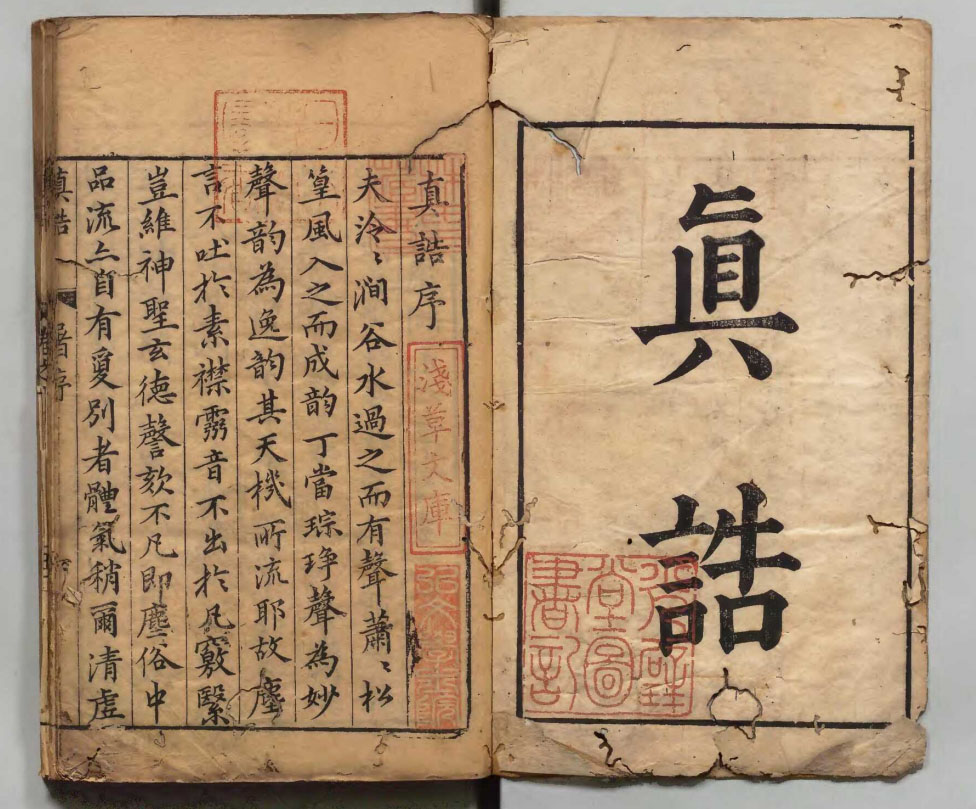 眞誥
真誥序
夫泠〻澗谷水過之而有聲蕭〻松
篁風入之而成韵丁當琮琤聲為妙
聲韵為逸韵其天機所流耶故塵
言不吐於素襟霛音不出於凡竅繄
豈維神聖玄德謦欬不凡即塵俗中
品流亦自有夐別者體氣稍爾清虛
真誥
淺草文庫